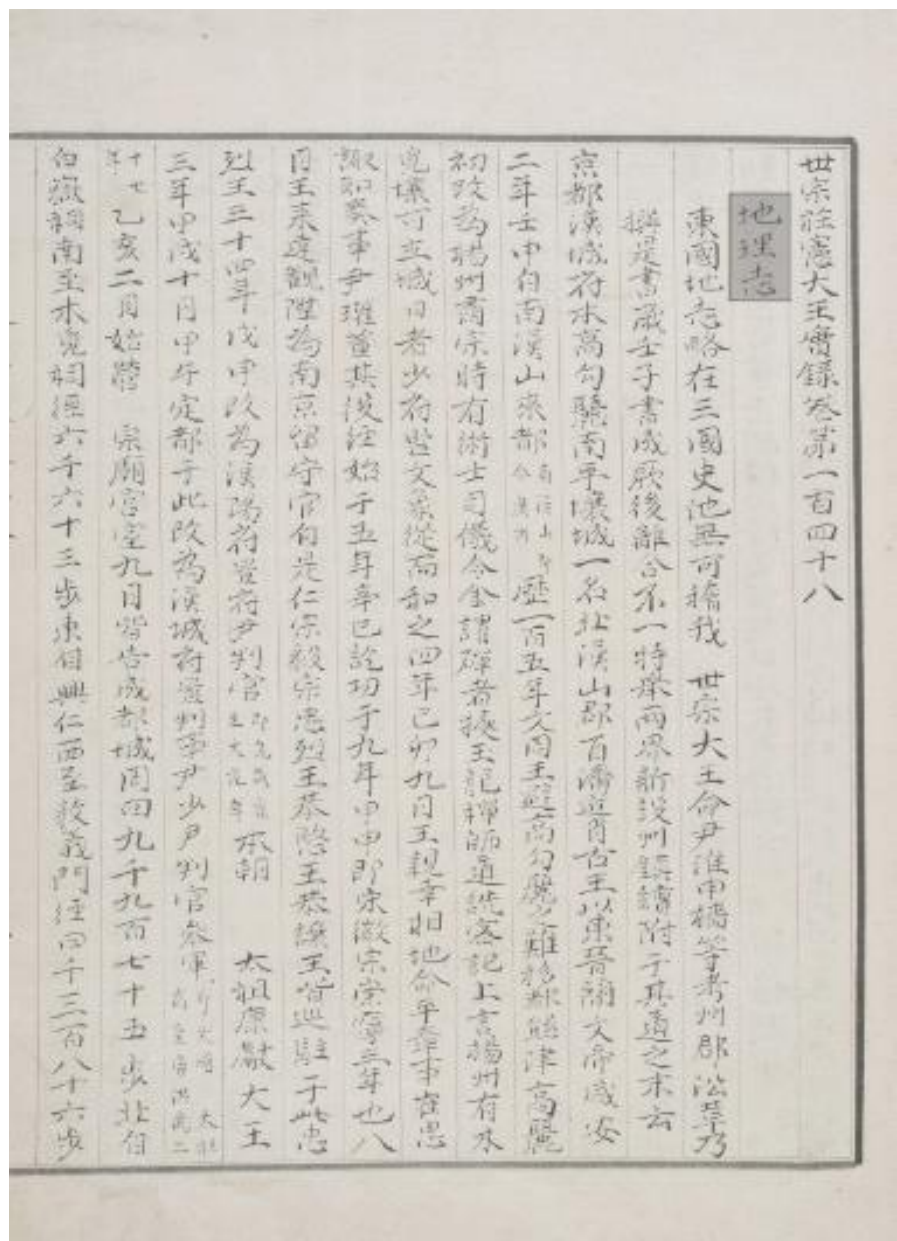 世宗莊憲大王實錄卷第一百四十八
地理志
東國地志略在三國史他無可稽我 世宗大王命尹淮申檣等考州郡沿革乃
撰是書歲壬子書成厥後離合不一特舉兩界新設州鎮續附于其道之末云
京都漢城府本高句麗南平壤城一名北漢山郡百濟近肖古王以東晉簡文帝咸安
二年壬申自南漢山來都 歷一百五年文周王避高句麗之難移都熊津高麗
初改為楊州肅宗時有術士司儀令金謂磾者據玉龍禪師道詵密記上言楊州有木
覓壤可立城日者少府監文象從而和之四年己卯九月王親幸相地命平章事崔思
諏知奏事尹瓘董其役經始于五年辛巳訖功于九年甲申即宋徽宗崇寧三年也八
月王來達觀陞為南京留守官自是仁宗毅宗忠烈王恭愍王恭讓王皆巡駐于此忠
烈王三十四年戊申改為漢陽府置府尹判官 本朝 太祖康獻大王
三年甲戌十月甲午定都于此改為漢城府置判事尹少尹判官參軍
年 乙亥二月始營 宗廟宮室九月皆告成都城周回九千九百七十五步北自
白嶽祠南至木覓祠徑六千六十三步東自興仁西至敦義門徑四千三百八十六步